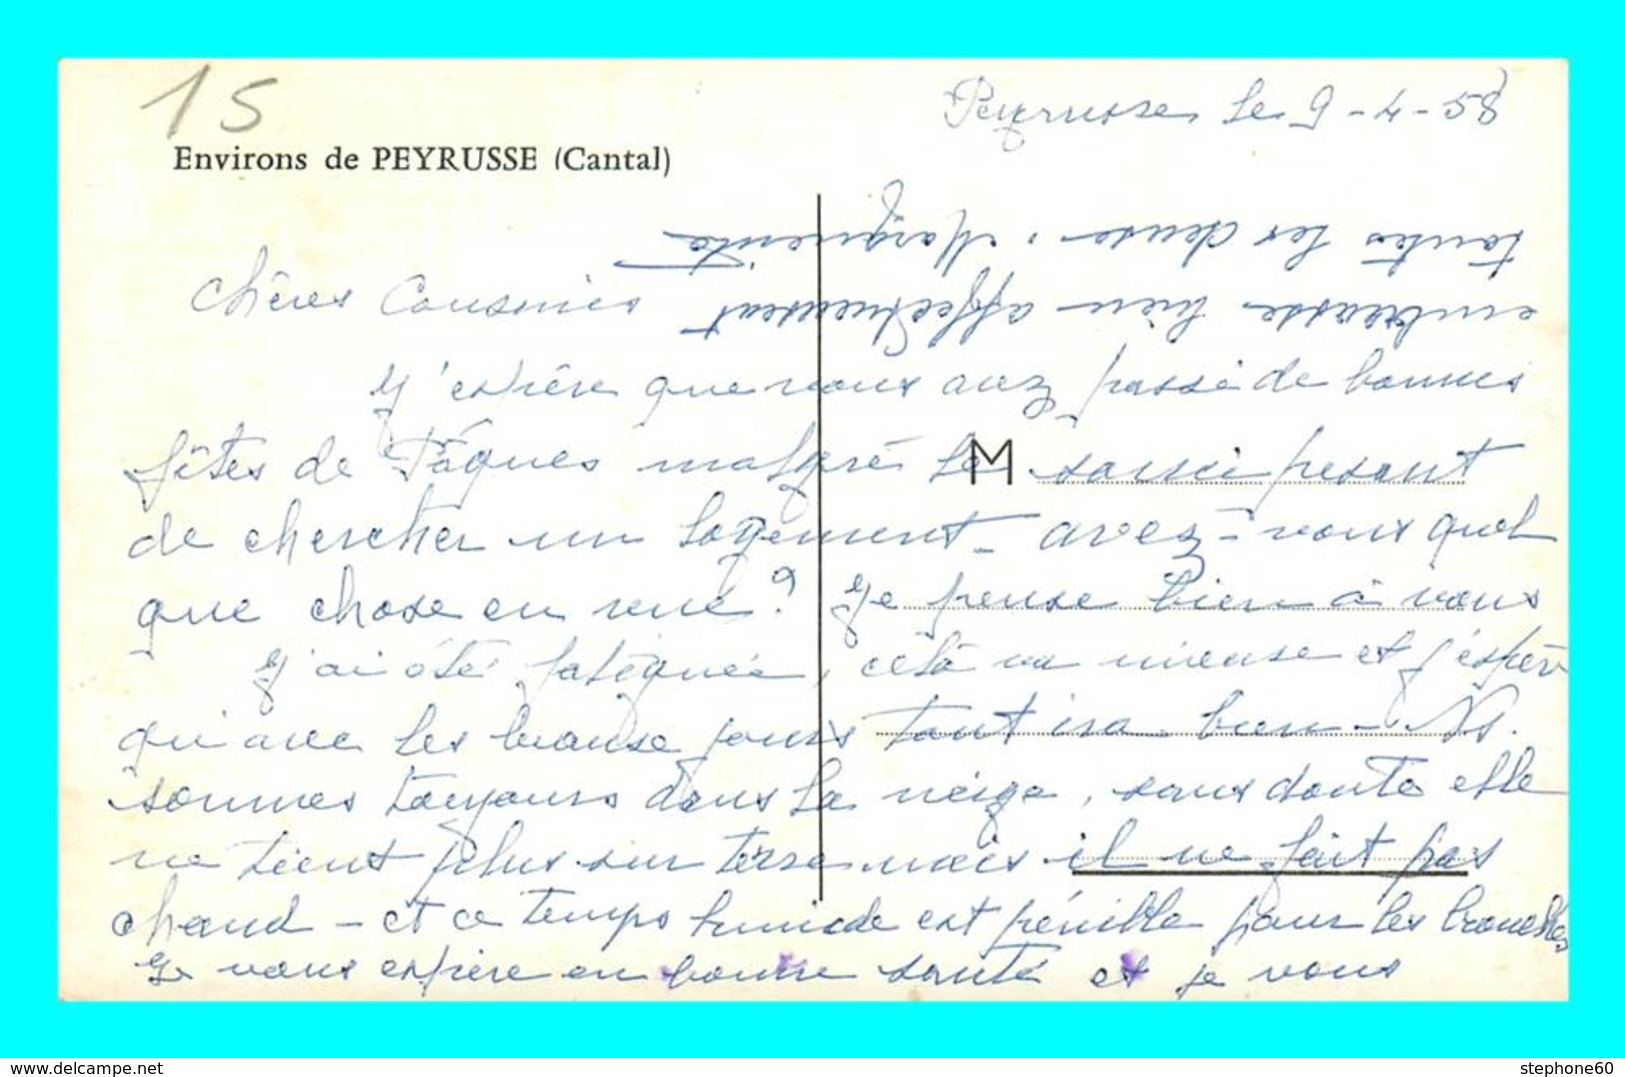 15
Environs de PEYRUSSE (Cantal)
Peyrusse le 9-4-58
Chères Cousines
J'espère que vous avez passé de bonnes
fêtes de Pâques malgré le souci pesant
M
de chercher un logement - avez-vous quel
que chose en vue? Je pense bien à vous
J'ai été fatiguée, celà va mieux et j'espère
qu'avec les beaux jours tout ira bien - Ns.
sommes toujours dans la neige, sans doute elle
ne tient plus sur terre mais il ne fait pas
chaud - et ce temps humide est pénible pour les bronches
Je vous espère en bonne santé et je vous
embrasse bien affectueusement
toutes les deux. Marguerite
www.delcampe.net
stephone60